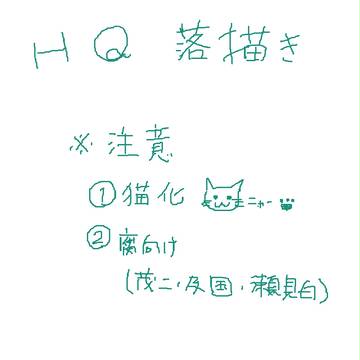 HQ 落描き
※注意
①猫化 ニャー
②腐向け
(茂二・及国・瀬見白)